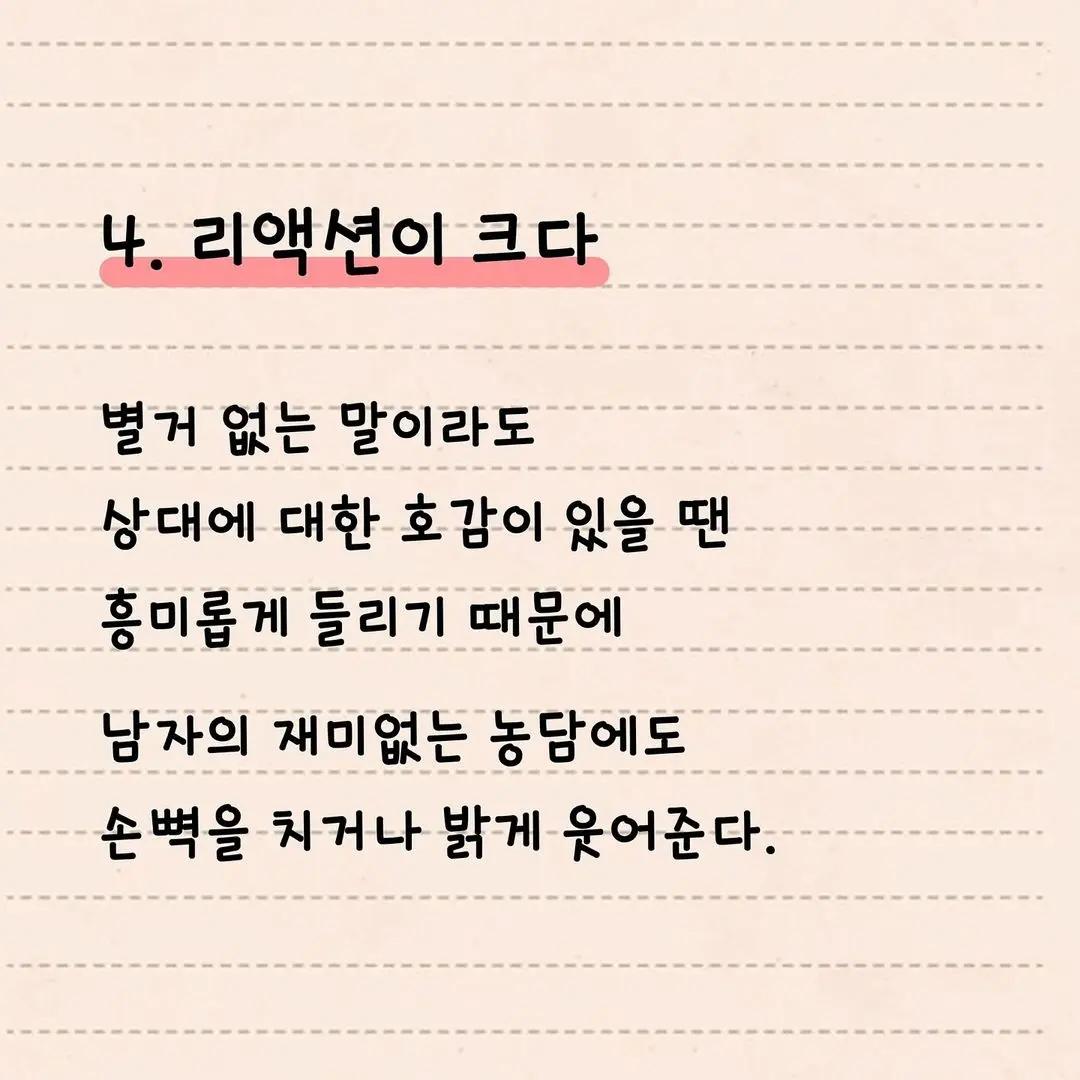 4. 리액션이 크다
별거 없는 말이라도
상대에 대한 호감이 있을 땐
흥미롭게 들리기 때문에
남자의 재미없는 농담에도
손뼉을 치거나 밝게 웃어준다.